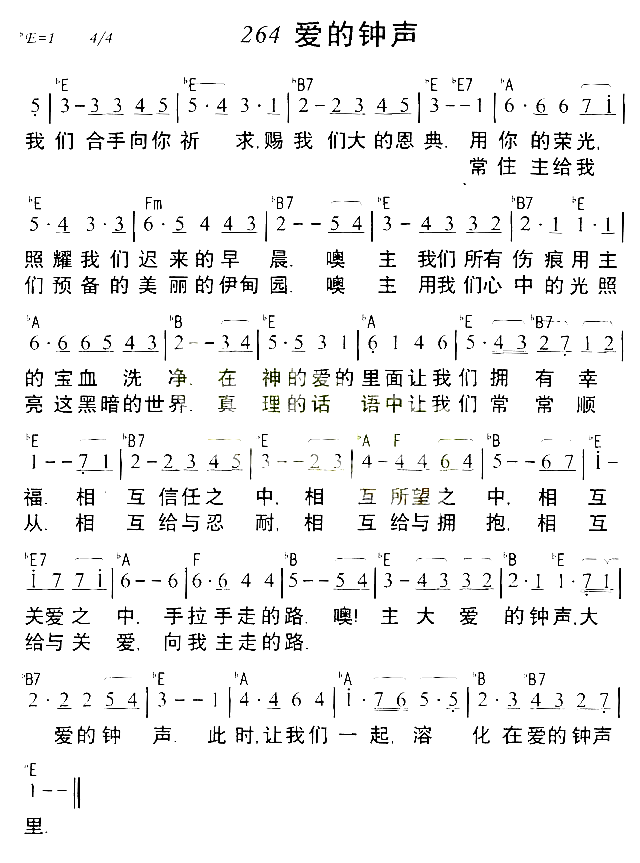 ♭E=1 4/4 264 爱的钟声
♭E ♭E ♭B7 ♭E ♭E7 ♭A
5 | 3 - 3 3 4 5 | 5 · 4 3 · 1 | 2 - 2 3 4 5 | 3 - - 1 | 6 · 6 6 7 i |
我们 合手向你祈 求,赐我 们大的恩典. 用你 的荣光,
常住 主给我
♭E Fm ♭B7 ♭E ♭B7 ♭E
5 · 4 3 · 3 | 6 · 5 4 4 3 | 2 - - 5 4 | 3 - 4 3 3 2 | 2 · 1 1 · 1 |
照耀我们迟来的早 晨. 噢 主 我们所有伤痕用主
们预备的美丽的伊甸园. 噢 主 用我们心中的光照
♭A ♭B ♭E ♭A ♭E ♭B7
6 · 6 6 5 4 3 | 2 - - 3 4 | 5 · 5 3 1 | 6 1 4 6 | 5 · 4 3 2 7 1 2 |
的宝血 洗 净. 在 神的爱的里面让我们 拥 有 幸
亮这黑暗的世界. 真 理的话 语中让我们 常 常 顺
♭E ♭B7 ♭E ♭A F ♭B ♭E
1 - - 7 1 | 2 - 2 3 4 5 | 3 - - 2 3 | 4 - 4 4 6 4 | 5 - - 6 7 | i -
福. 相 互信任之 中, 相 互所望之 中, 相互
从. 相互给与忍 耐, 相 互给与拥 抱, 相互
♭E7 ♭A F ♭B ♭E ♭B7
i 7 7 i | 6 - - 6 | 6 · 6 4 4 | 5 - - 5 4 | 3 - 4 3 3 2 | 2 · 1 1 · 7 1 |
关爱之 中. 手拉手走的路. 噢! 主 大 爱 的钟声,大
给与关 爱, 向我主走的路.
♭B7 ♭E ♭A ♭A ♭B ♭B7
2 · 2 2 5 4 | 3 - - 1 | 4 · 4 6 4 | i · 7 6 5 · 5 | 2 · 3 4 3 2 7 |
爱的钟 声. 此时,让我们 一 起, 溶 化在爱的钟声
♭E
1 - - ‖
里.